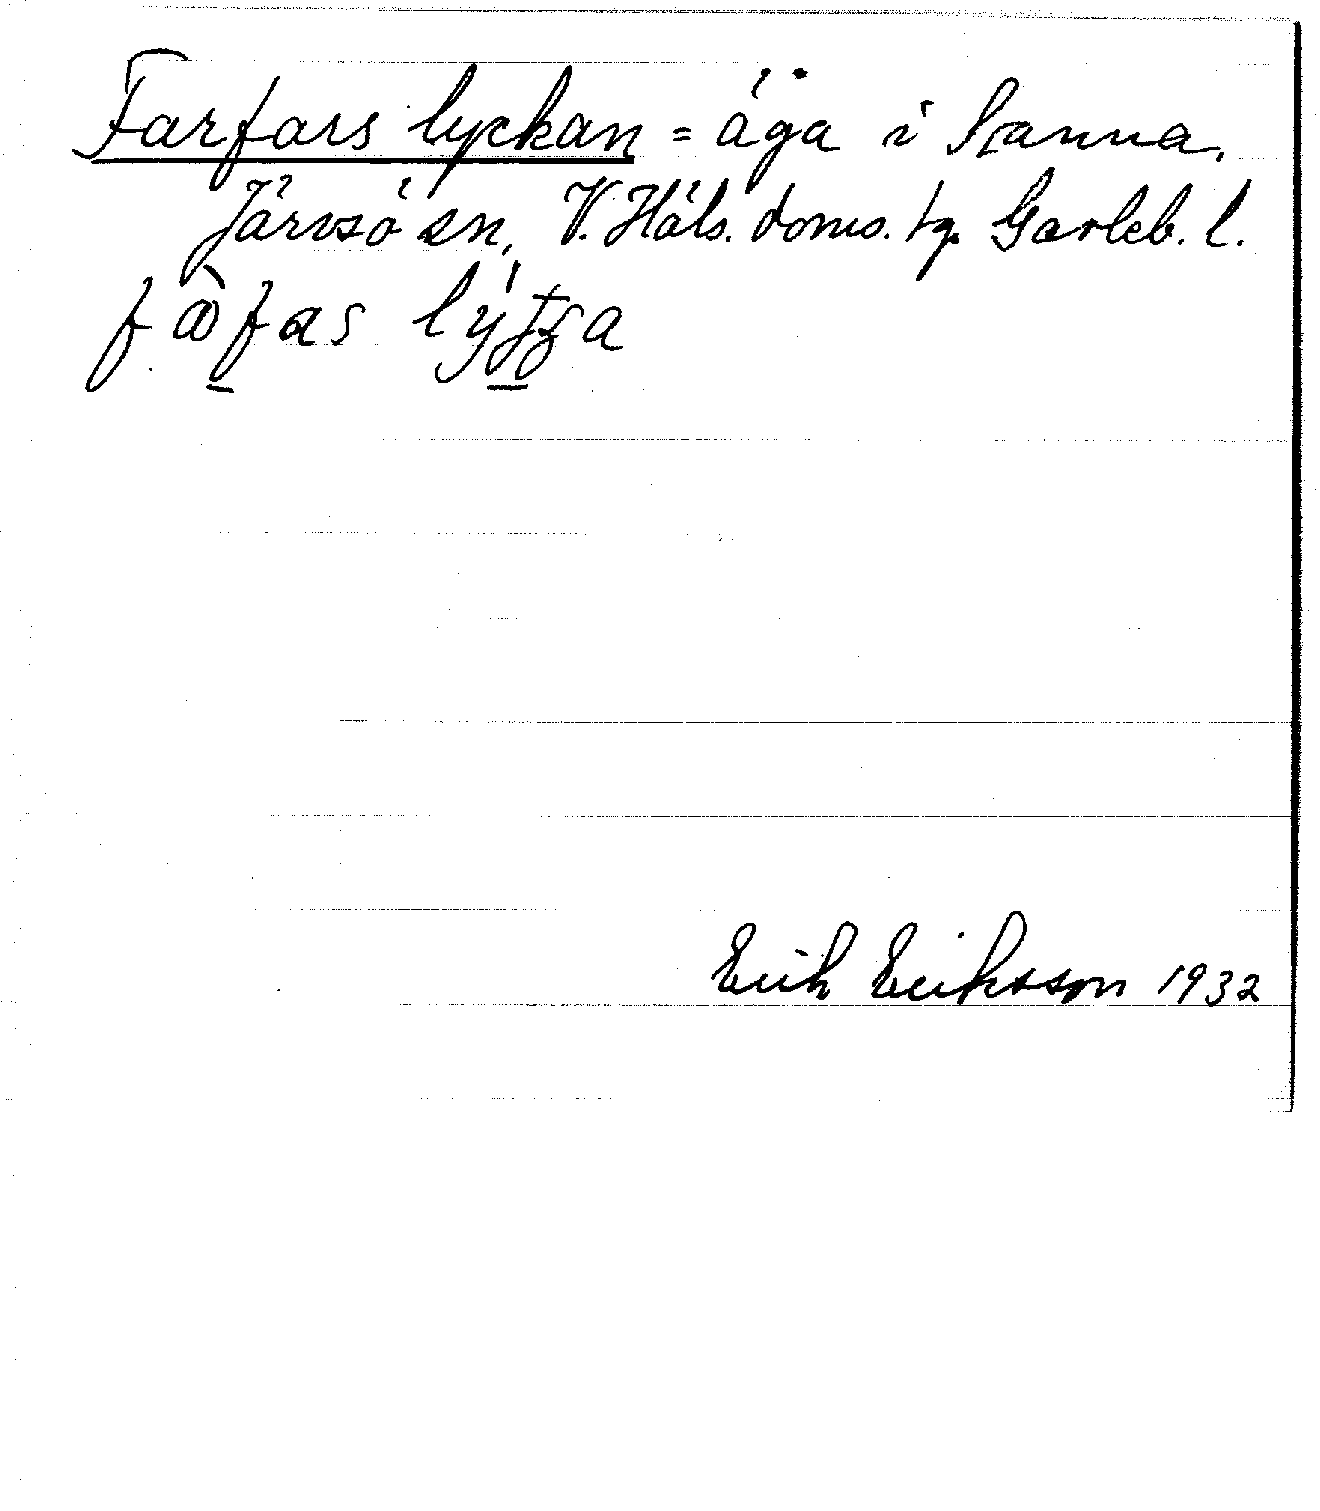 Farfars lyckan = äga i Stanna,
Järvsö sn, V. Häls. doms. tg. Gävleb. l.
Erik Eriksson 1932